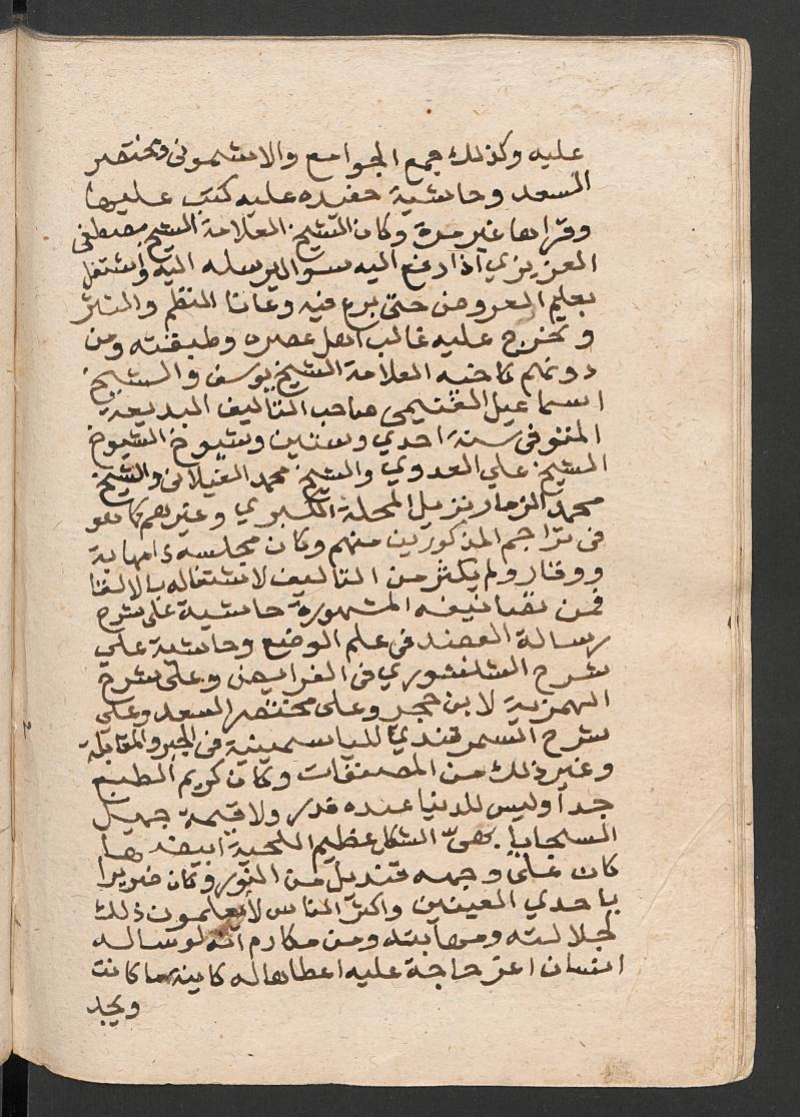 عليه وكذلك جمع الجوامع والاشموني ومختصر
السعد وحاشية حفيده عليه كتب عليها
وقراها غير مرة وكان الشيخ العلامة الشيخ مصطفى
العزيزي اذا رفع اليه سوال يرسله اليه واشتغل
بعلم العروض حتى برع فيه وعانا النظم والنثر
وتخرج عليه غالب اهل عصره وطبقته ومن
دونهم كاخيه العلامة الشيخ يوسف والشيخ
اسماعيل الغنيمي صاحب التاليف البديعة
المتوفى سنة احدي وستين وشيوخ الشيوخ
الشيخ علي العدوي والشيخ محمد الغيلاني والشيخ
محمد الزمار نزيل المحلة الكبري وغيرهم كما هو
في تراجم المذكورين منهم وكان مجلسه ذا مهابة
ووقار ولم يكثر من التاليف لاشتغاله بالالقا
فمن تصانيفه المشهورة حاشية على شرح
رسالة العضد في علم الوضع وحاشية علي
شرح الشنشوري في الفرايض وعلى شرح
الهمزية لابن حجر وعلى مختصر السعد وعلي
شرح السمرقندي للياسمينية في الجبر والمقابلة
وغير ذلك من المصنفات وكان كريم الطبع
جدا وليس للدنيا عنده قدر ولا قيمة جميل
السجايا بهي الشكل عظيم اللحية ابيضها
كان على وجهه قنديل من النور وكان ضريرا
باحدي العينين واكثر الناس لا يعلمون ذلك
لجلالته ومهابته ومن مكارم انه لو ساله
انسان اعز حاجة عليه اعطاها له كاينة ما كانت
ويجد